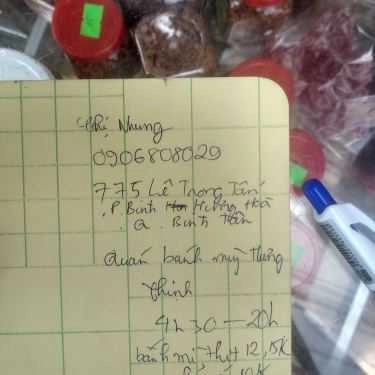 Chị Nhung
0906808029
775 Lê Trọng Tấn
P. Bình Hưng Hoà
Q. Bình Tân
Quán bánh mỳ Hưng
Thịnh
4h30 - 20h
bánh mỳ thịt 12,5K
10K